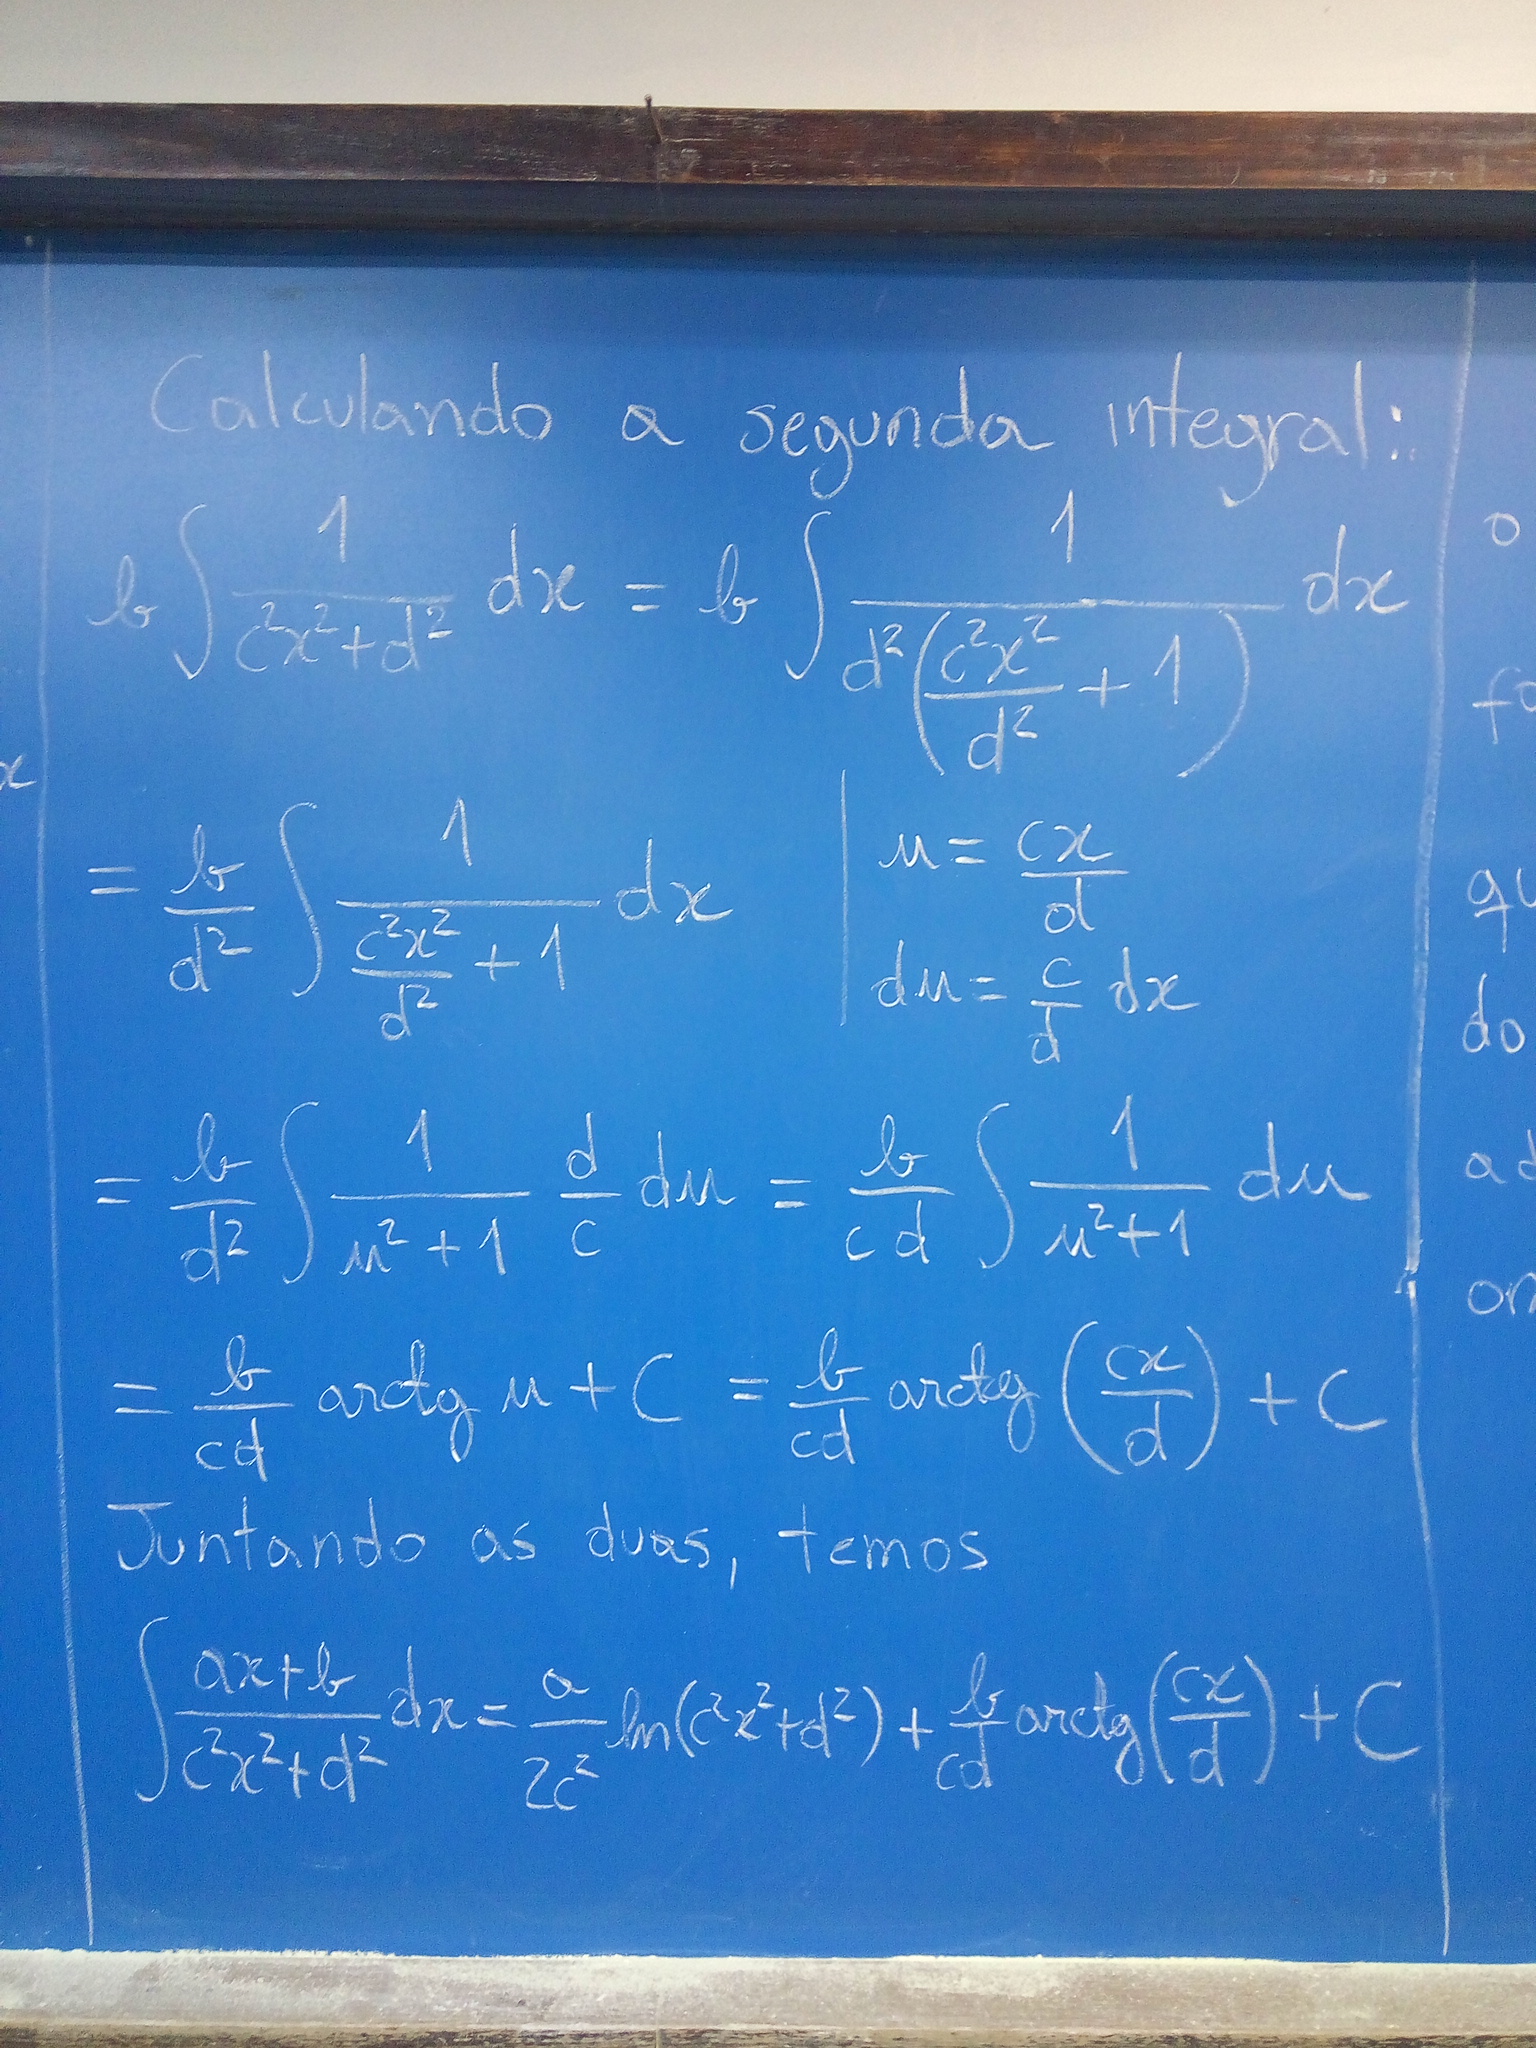 Calculando a segunda integral:
b ∫ 1/(c²x²+d²) dx = b ∫ 1/(d²(c²x²/d² + 1)) dx
= b/d² ∫ 1/(c²x²/d² + 1) dx | u = cx/d
du = c/d dx
= b/d² ∫ 1/(u²+1) d/c du = b/(cd) ∫ 1/(u²+1) du
= b/(cd) arctg u + C = b/(cd) arctg (cx/d) + C
Juntando as duas, temos
∫ (ax+b)/(c²x²+d²) dx = a/(2c²) ln(c²x²+d²) + b/(cd) arctg(cx/d) + C
x
o
qu
do